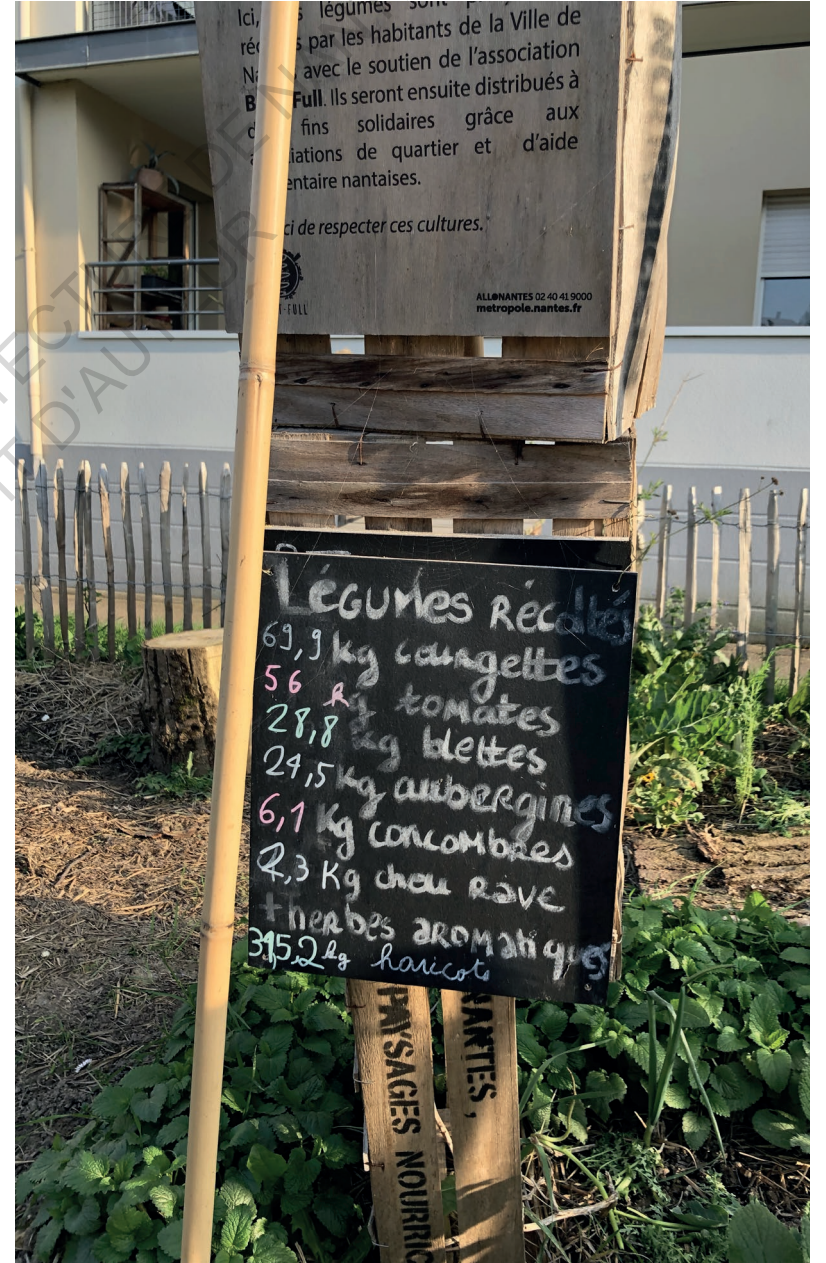 Ici, légumes sont
par les habitants de la Ville de
avec le soutien de l'association
Full. Ils seront ensuite distribués à
fins solidaires grâce aux
de quartier et d'aide
nantaises.
de respecter ces cultures.
ALLONANTES 02 40 41 9000
metropole.nantes.fr
Légumes Récoltés
69,9 kg courgettes
56 kg tomates
28,8 kg blettes
24,5 kg aubergines
6,1 Kg concombres
2,3 Kg chou rave
+ herbes aromatiques
kg haricots
PAYSAGES NOURRIC